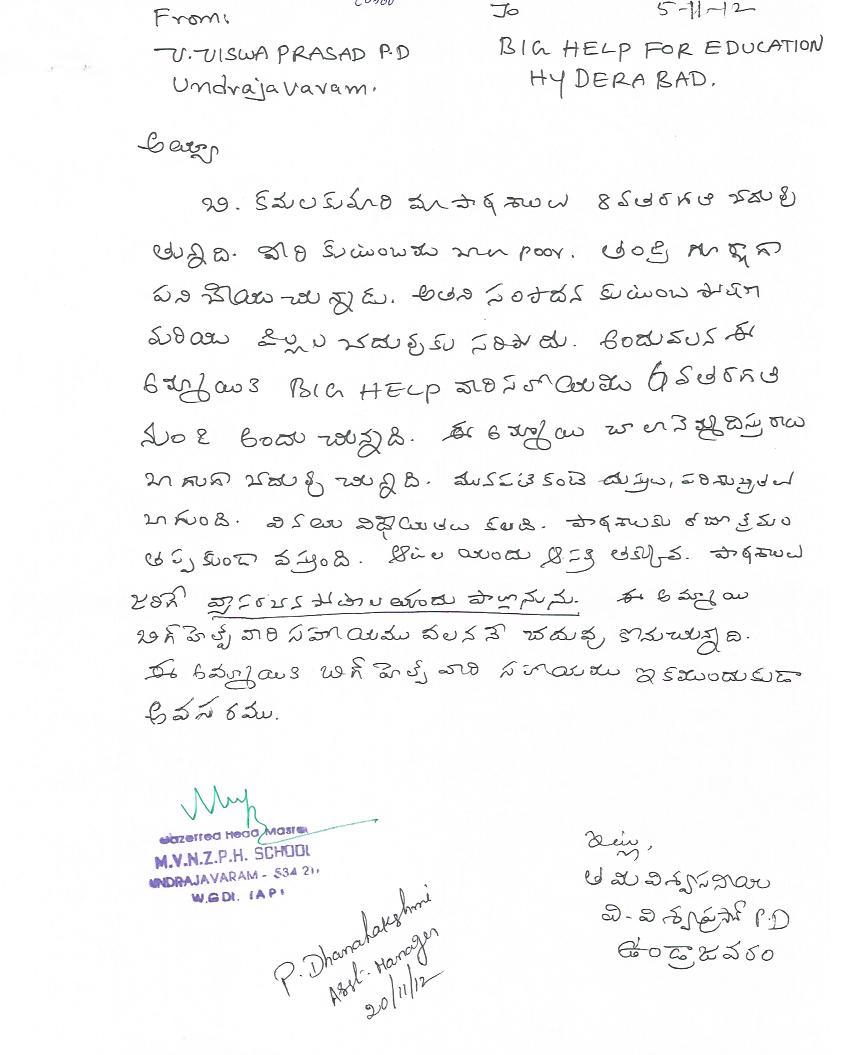 From:
To
5-11-12
V. VISWA PRASAD P.D
BIG HELP FOR EDUCATION
Undrajavaram.
HYDERABAD.
అయ్యా
బి. కమలకుమారి మా పాఠశాలలో 8 వతరగతి చదువు
తున్నది. వారి కుటుంబము చాలా poor. తండ్రి గుర్ఖాగా
పని చేయుచున్నాడు. అతని సంపాదన కుటుంబ పోషణ
మరియు పిల్లల చదువుకు సరిపోదు. అందువలన ఈ
అమ్మాయికి BIG HELP వారి సహాయము 6 వతరగతి
నుండి అందుచున్నది. ఈ అమ్మాయి చాలా నెమ్మదిస్తురాలు
బాగుగా చదువు చున్నది. మునపటికంటె దుస్తులు, పరిశుభ్రతలు
బాగుంది. వినయ విధేయతలు కలది. పాఠశాలకు క్రమం
తప్పకుండా వస్తుంది. ఆటల యందు ఆసక్తి తక్కువ. పాఠశాలలో
జరిగే వ్యాసరచన పోటీల యందు పాల్గొనును. ఈ అమ్మాయి
బిగ్ హెల్ప్ వారి సహాయము వలననే చదువు కొనుచున్నది.
ఈ అమ్మాయికి బిగ్ హెల్ప్ వారి సహాయము ఇకముందుకుడా
అవసరము.
Gazetted Head Master
M.V.N.Z.P.H. SCHOOL
UNDRAJAVARAM - 534 21
W.G.Dt. (A.P)
P. Dhanalakshmi
Asst. Manager
20/11/12
ఇట్లు,
తమ విశ్వసనీయ
వి. విశ్వప్రసాద్ P.D
ఉండ్రాజవరం